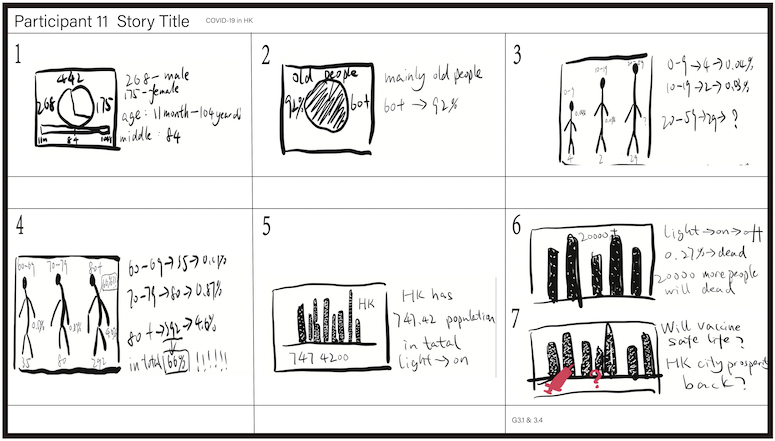 Participant 11 Story Title
COVID-19 in HK
1
442
268
175
11m
84
268 - male
175 - female
age : 11 month - 104 year old
middle : 84
2
old people
92%
60+
mainly old people
60+ → 92%
3
0-9
10-19
4
2
29
0-9 → 4 → 0.04%
10-19 → 2 →
20-59 → 29 → ?
4
60-69
70-79
80+
35
80
292
60-69 → 35 →
70-79 → 80 → 0.87%
80+ → 292 → 4.6%
in total 66% !!!!!!
5
HK
747 4200
HK has
747.42 population
in tatal
light → on
6
20000+
Light → on → off
0.27% → dead
20000 more people
will dead
7
?
Will vaccine
safe life ?
HK city prosperity
back ?
G3.1 & 3.4